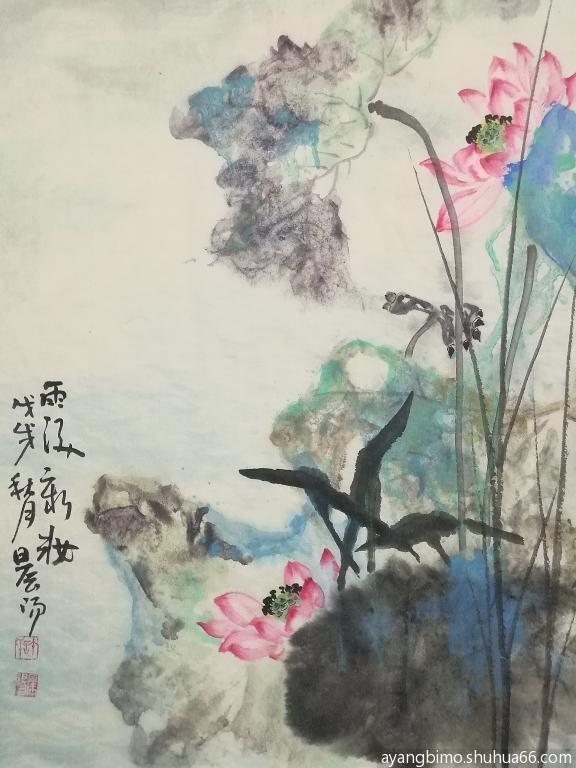 雨后新妆
戊戌秋月晨阳
ayangbimo.shuhua66.com